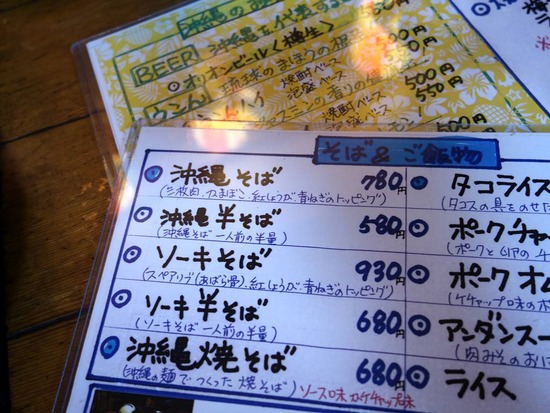 沖縄の
沖縄を代表する
BEER
オリオンビール〈樽生〉
琉球のまほうの
焼酎ベース
泡盛ベース
500
550
焼酎ベース
泡盛ベース
500
550円
そば&ご飯物
沖縄そば 780円
(三枚肉、かまぼこ、紅しょうが、青ねぎのトッピング)
沖縄半そば 580円
(沖縄そば一人前の半量)
ソーキそば 930円
(スペアリブ(あばら骨)、紅しょうが、青ねぎのトッピング)
ソーキ半そば 680円
(ソーキそば一人前の半量)
沖縄焼そば 680円
(沖縄の麺でつくった焼そば)ソース味かケチャップ味
タコライス
(タコスの具をのせた
ポークチャ
ポークオム
(ケチャップ味の
アンダンスー
(肉みそのおに
ライス